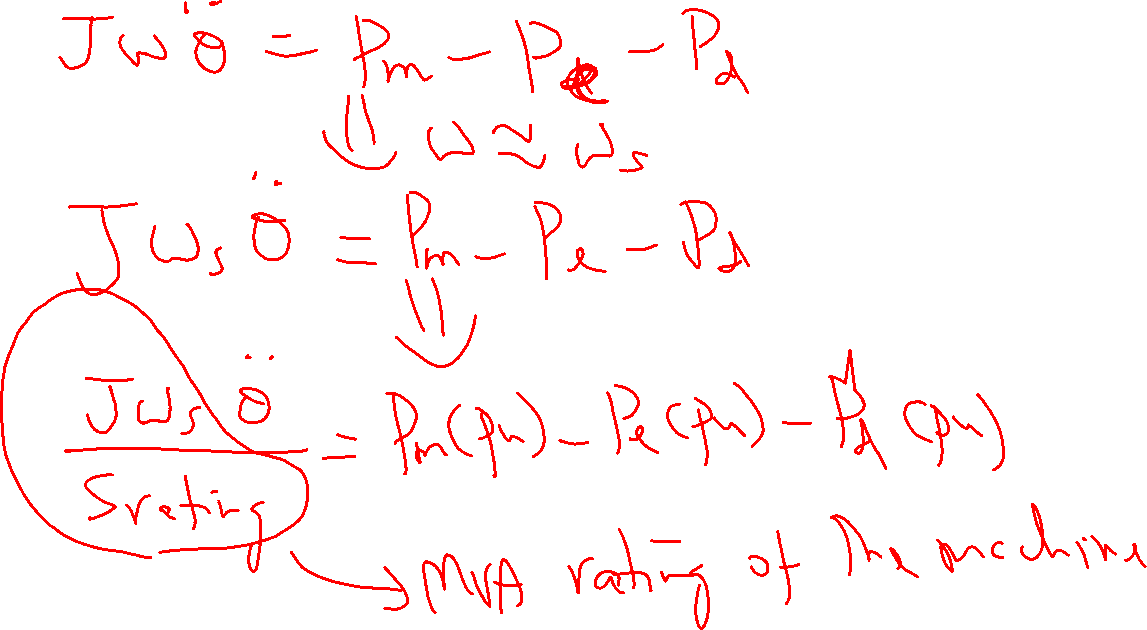 Jωθ̈ = Pm - Pe - Pd
⇓ ω ≈ ωs
Jωsθ̈ = Pm - Pe - Pd
⇓
Jωsθ̈ / Srating = Pm(pu) - Pe(pu) - Pd(pu)
→ MVA rating of the machine